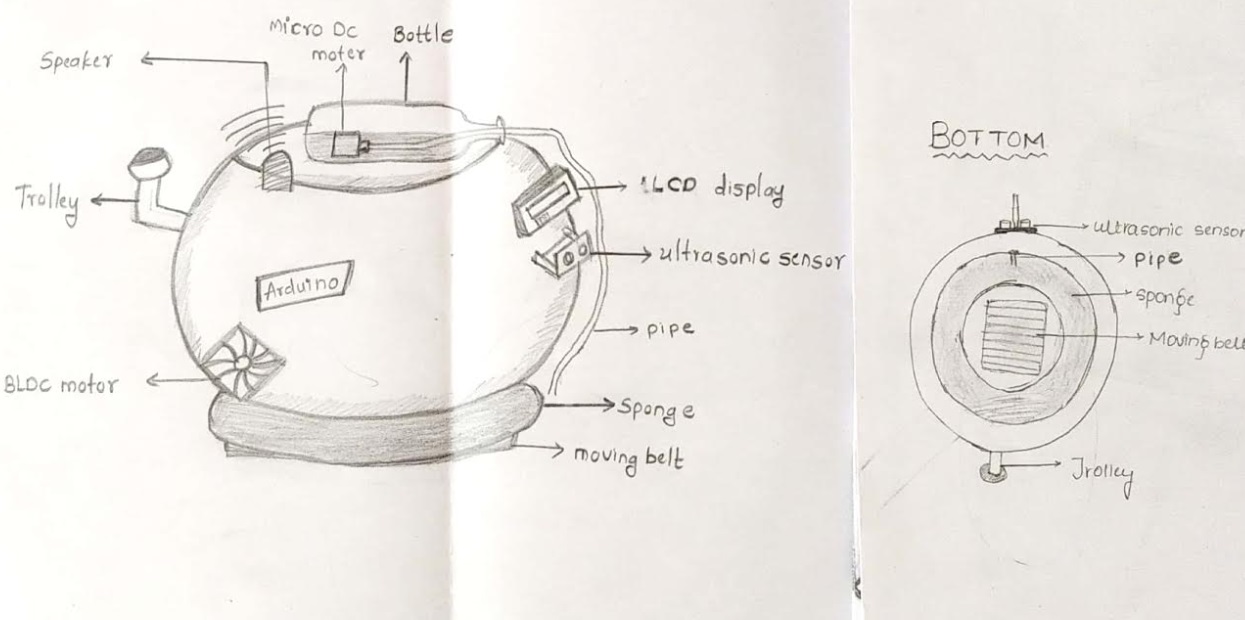 Micro Dc
moter
Bottle
Speaker
Trolley
LCD display
ultrasonic sensor
Arduino
pipe
BLDC motor
Sponge
moving belt
BOTTOM
ultrasonic sensor
pipe
sponge
Moving belt
Trolley